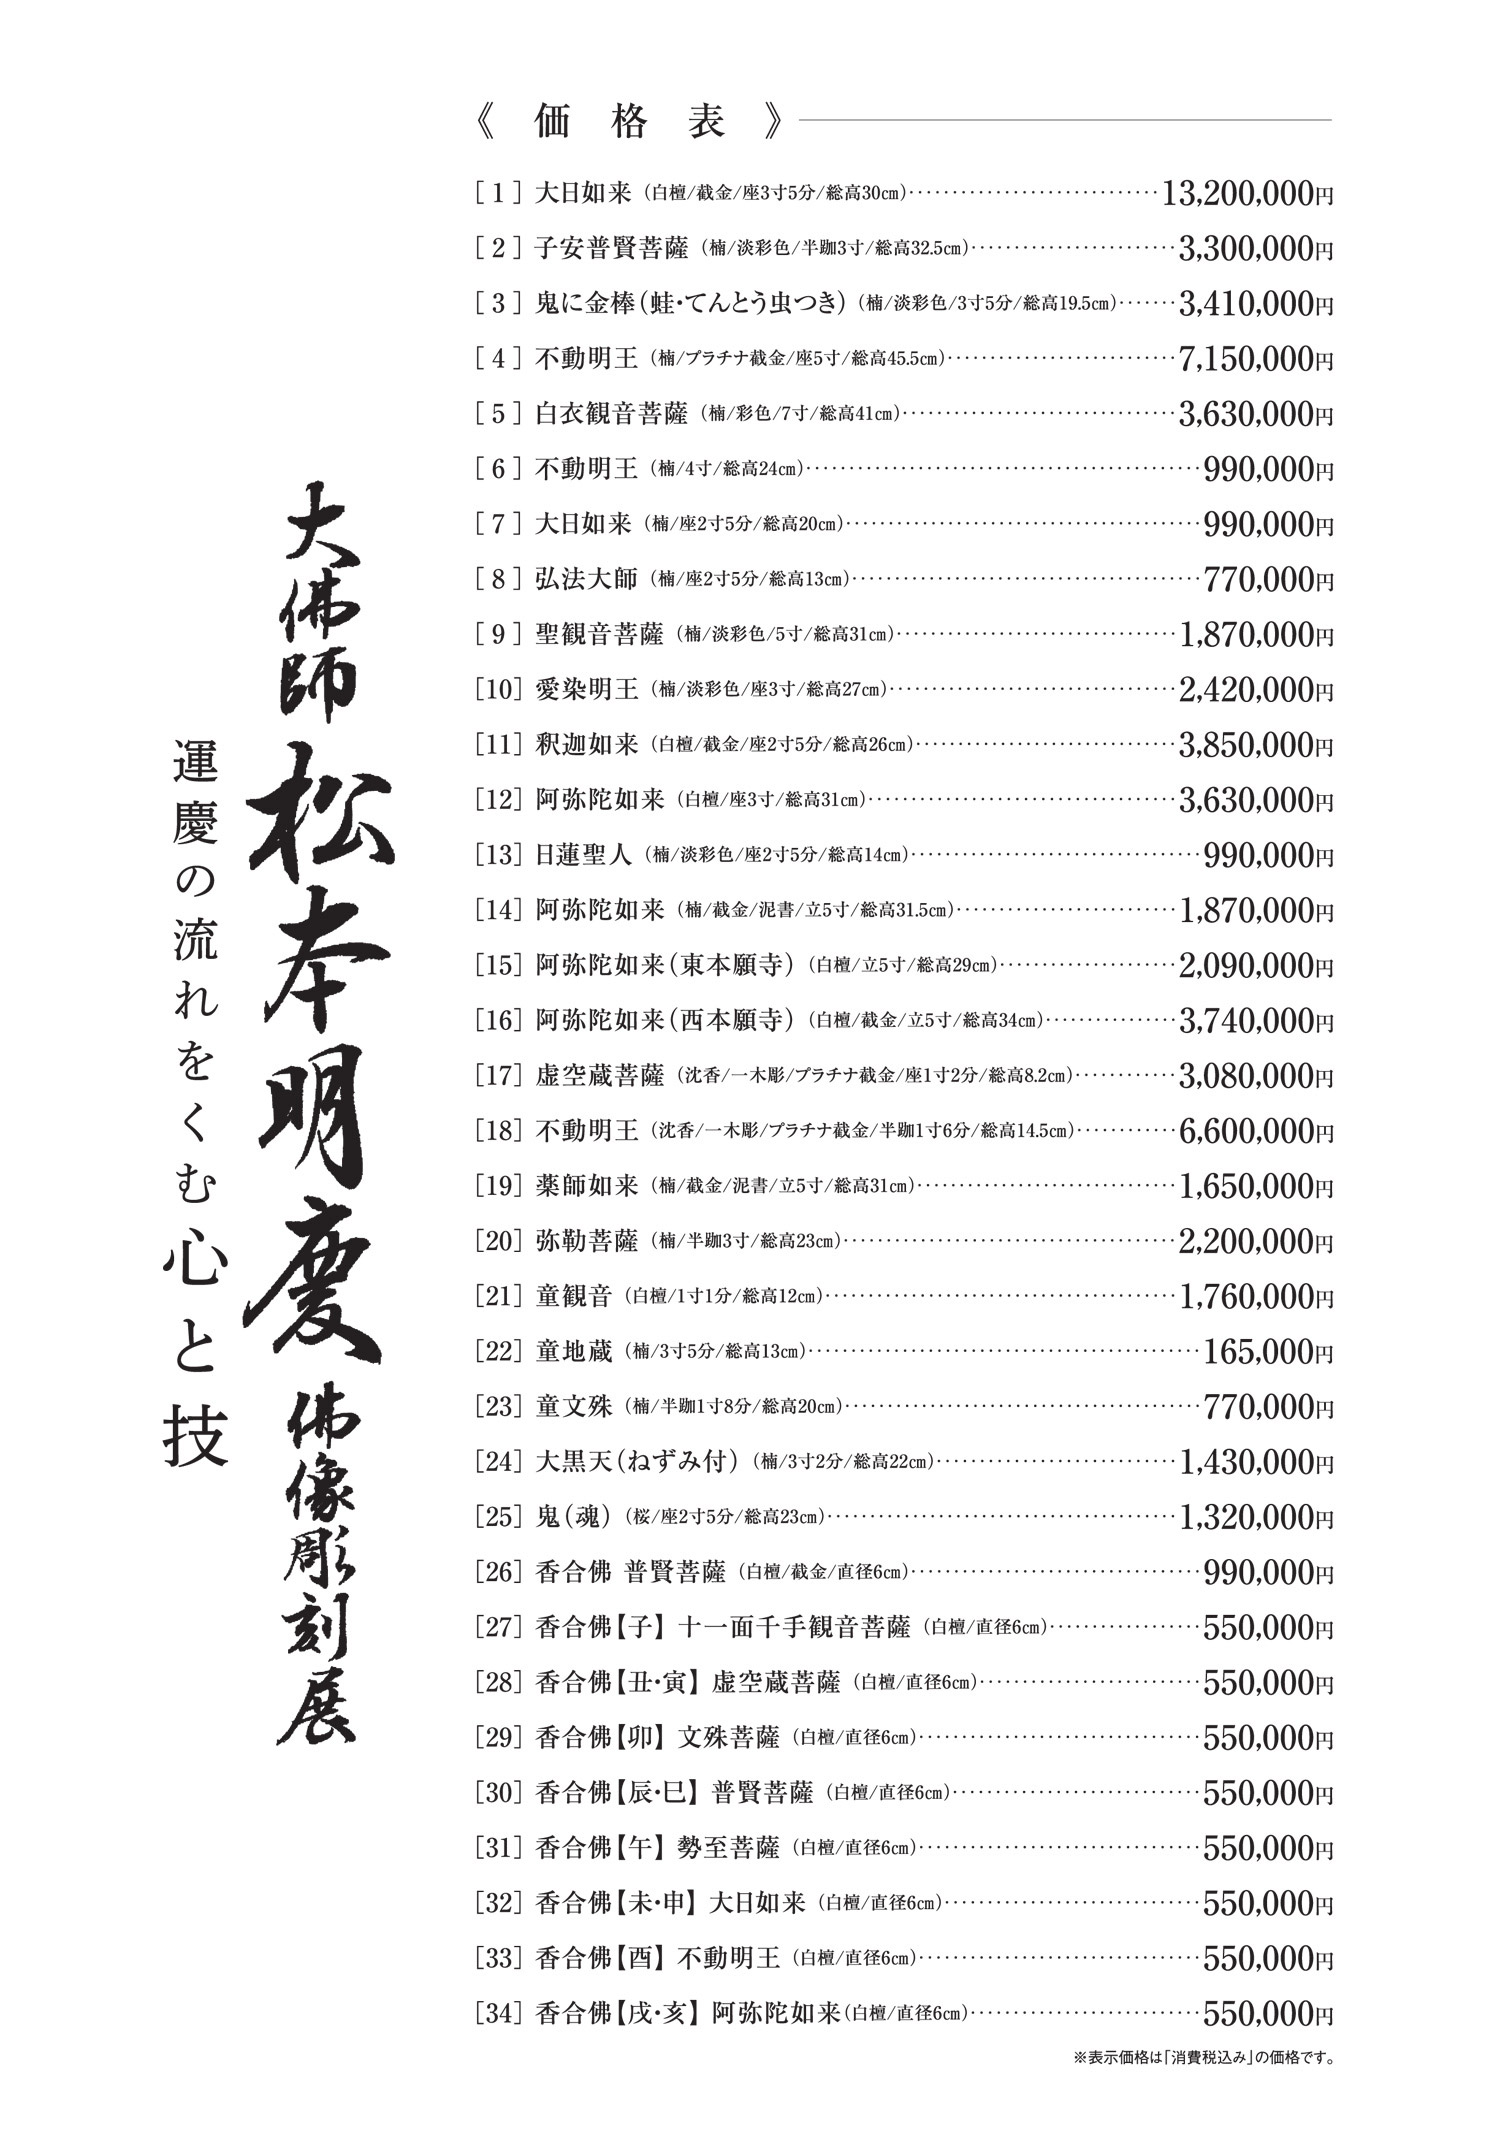 大佛師 松本明慶 佛像彫刻展
運慶の流れをくむ心と技
《 価 格 表 》
[ 1 ] 大日如来（白檀/截金/座3寸5分/総高30cm）…………………………13,200,000円
[ 2 ] 子安普賢菩薩（楠/淡彩色/半跏3寸/総高32.5cm）……………………3,300,000円
[ 3 ] 鬼に金棒（蛙・てんとう虫つき）（楠/淡彩色/3寸5分/総高19.5cm）……3,410,000円
[ 4 ] 不動明王（楠/プラチナ截金/座5寸/総高45.5cm）………………………7,150,000円
[ 5 ] 白衣観音菩薩（楠/彩色/7寸/総高41cm）……………………………3,630,000円
[ 6 ] 不動明王（楠/4寸/総高24cm）…………………………………………990,000円
[ 7 ] 大日如来（楠/座2寸5分/総高20cm）……………………………………990,000円
[ 8 ] 弘法大師（楠/座2寸5分/総高13cm）……………………………………770,000円
[ 9 ] 聖観音菩薩（楠/淡彩色/5寸/総高31cm）……………………………1,870,000円
[10] 愛染明王（楠/淡彩色/座3寸/総高27cm）……………………………2,420,000円
[11] 釈迦如来（白檀/截金/座2寸5分/総高26cm）…………………………3,850,000円
[12] 阿弥陀如来（白檀/座3寸/総高31cm）………………………………3,630,000円
[13] 日蓮聖人（楠/淡彩色/座2寸5分/総高14cm）……………………………990,000円
[14] 阿弥陀如来（楠/截金/泥書/立5寸/総高31.5cm）………………………1,870,000円
[15] 阿弥陀如来（東本願寺）（白檀/立5寸/総高29cm）…………………2,090,000円
[16] 阿弥陀如来（西本願寺）（白檀/截金/立5寸/総高34cm）……………3,740,000円
[17] 虚空蔵菩薩（沈香/一木彫/プラチナ截金/座1寸2分/総高8.2cm）…………3,080,000円
[18] 不動明王（沈香/一木彫/プラチナ截金/半跏1寸6分/総高14.5cm）…………6,600,000円
[19] 薬師如来（楠/截金/泥書/立5寸/総高31cm）…………………………1,650,000円
[20] 弥勒菩薩（楠/半跏3寸/総高23cm）…………………………………2,200,000円
[21] 童観音（白檀/1寸1分/総高12cm）……………………………………1,760,000円
[22] 童地蔵（楠/3寸5分/総高13cm）…………………………………………165,000円
[23] 童文殊（楠/半跏1寸8分/総高20cm）……………………………………770,000円
[24] 大黒天（ねずみ付）（楠/3寸2分/総高22cm）…………………………1,430,000円
[25] 鬼（魂）（桜/座2寸5分/総高23cm）……………………………………1,320,000円
[26] 香合佛 普賢菩薩（白檀/截金/直径6cm）………………………………990,000円
[27] 香合佛【子】 十一面千手観音菩薩（白檀/直径6cm）………………550,000円
[28] 香合佛【丑・寅】 虚空蔵菩薩（白檀/直径6cm）………………………550,000円
[29] 香合佛【卯】 文殊菩薩（白檀/直径6cm）………………………………550,000円
[30] 香合佛【辰・巳】 普賢菩薩（白檀/直径6cm）…………………………550,000円
[31] 香合佛【午】 勢至菩薩（白檀/直径6cm）………………………………550,000円
[32] 香合佛【未・申】 大日如来（白檀/直径6cm）…………………………550,000円
[33] 香合佛【酉】 不動明王（白檀/直径6cm）………………………………550,000円
[34] 香合佛【戌・亥】 阿弥陀如来（白檀/直径6cm）………………………550,000円
※表示価格は「消費税込み」の価格です。